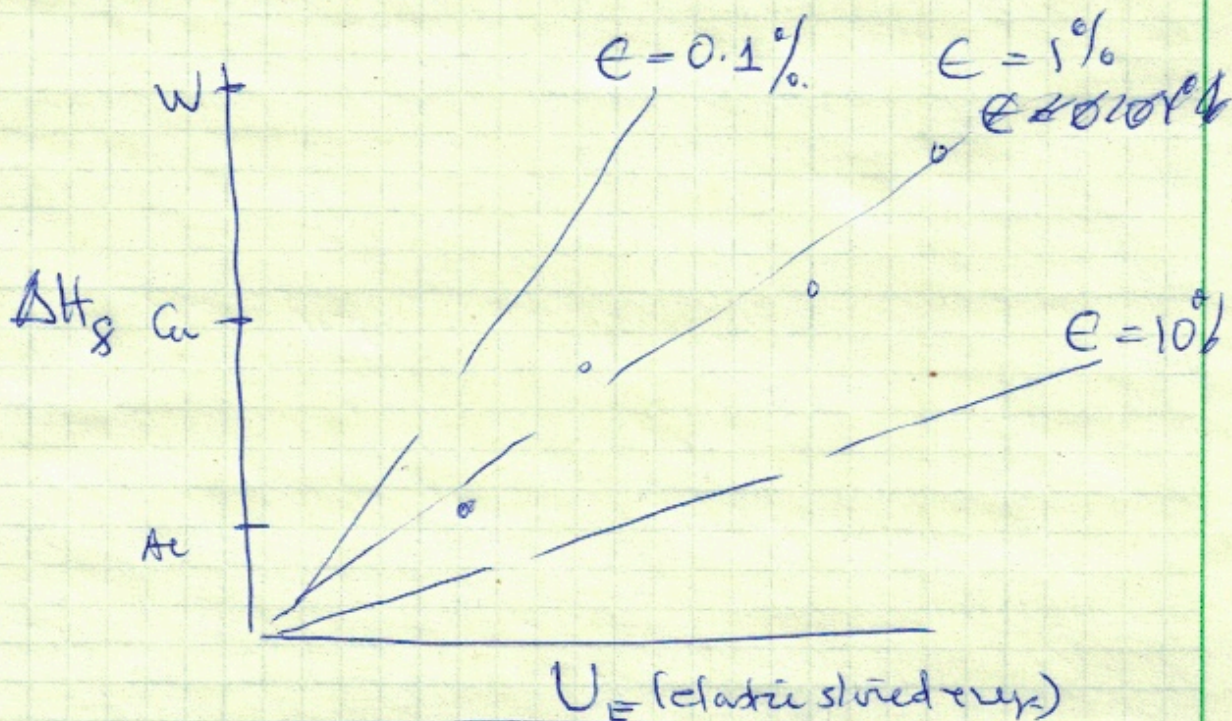 ϵ = 0.1%
ϵ = 1%
W
ΔH
Cu
ϵ = 10%
Al
U_E (elastic stored energy)